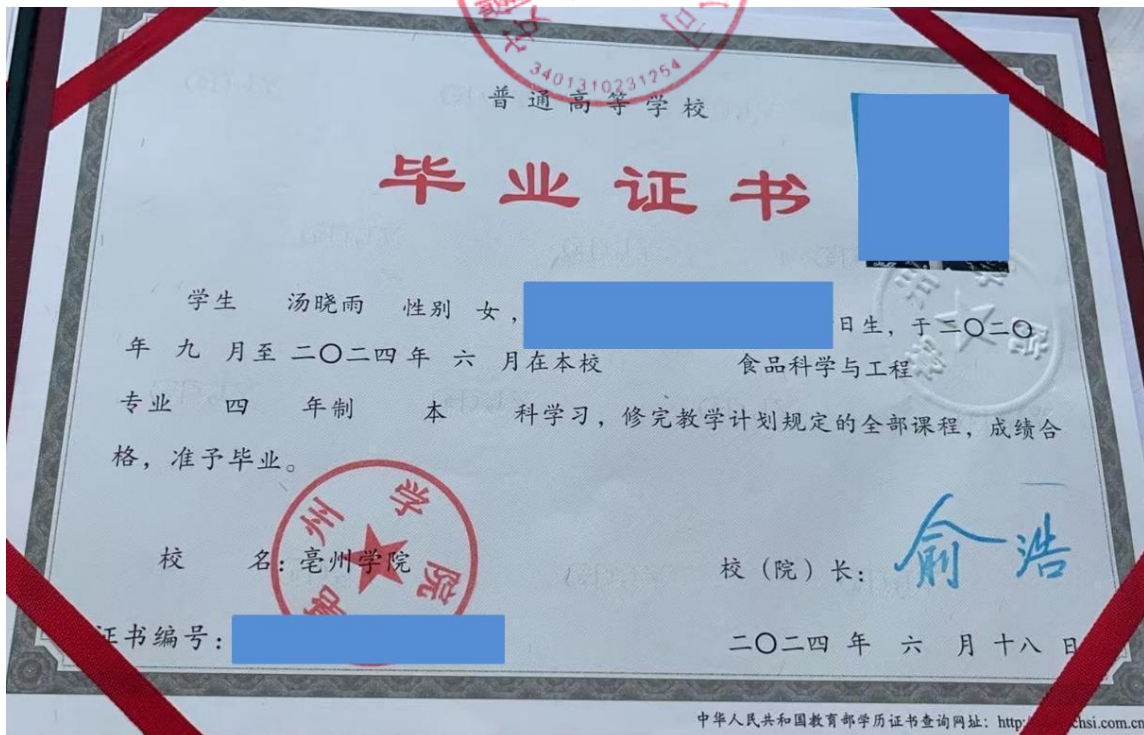 3401310231254
普通高等学校
毕业证书
学生 汤晓雨 性别 女，
日生，于二〇二〇
年 九 月至 二〇二四 年 六 月在本校 食品科学与工程
专业 四 年制 本 科学习，修完教学计划规定的全部课程，成绩合
格，准予毕业。
亳州学院
校 名：亳州学院
校（院）长：俞浩
证书编号：
二〇二四 年 六 月 十八 日
中华人民共和国教育部学历证书查询网址：http: chsi.com.cn